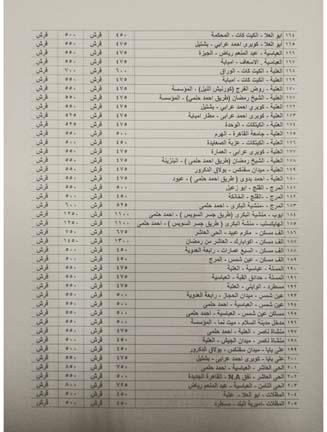 ١٦٤ أبو العلا - الكيت كات - المحكمة ٤٥٠ قرش ٥٠٠ قرش
١٦٥ أبو العلا - كوبرى أحمد عرابى - بشتيل ٤٧٥ قرش ٥٥٠ قرش
١٦٦ العباسية - عبد المنعم رياض - الجيزة ٤٧٥ قرش ٥٥٠ قرش
١٦٧ العباسية - الاسعاف - امبابة ٤٧٥ قرش ٥٥٠ قرش
١٦٨ العتبة - الكيت كات - الوراق ٦٠٠ قرش ٧٠٠ قرش
١٦٩ العتبة - الكيت كات - امبابة ٤٧٥ قرش ٥٥٠ قرش
١٧٠ العتبة - روض الفرج (كورنيش النيل) - المؤسسة ٤٧٥ قرش ٥٥٠ قرش
١٧١ العتبة - الشيخ رمضان (طريق احمد حلمى) - المؤسسة ٤٧٥ قرش ٥٥٠ قرش
١٧٢ العتبة - كوبرى احمد عرابى - بشتيل ٤٧٥ قرش ٥٥٠ قرش
١٧٣ العتبة - كوبرى احمد عرابى - مطار امبابة ٤٧٥ قرش ٥٢٥ قرش
١٧٤ العتبة - الكيتكات - الوحدة ٤٧٥ قرش ٥٢٥ قرش
١٧٥ العتبة - جامعة القاهرة - الهرم ٥٠٠ قرش
١٧٦ العتبة - الكيتكات - عزبة الصعايدة ٤٧٥ قرش ٥٥٠ قرش
١٧٧ العتبة - كوبرى عرابى - العمارة ٤٧٥ قرش ٥٥٠ قرش
١٧٨ العتبة - الشيخ رمضان (طريق احمد حلمى) - ٤٧٥ قرش ٥٥٠ قرش
١٧٩ العتبة - ميدان سفنكس - بولاق الدكرور ٤٧٥ قرش ٥٥٠ قرش
١٨٠ العتبة - احمد بدوى (طريق احمد حلمى) - عبود ٤٧٥ قرش ٥٥٠ قرش
١٨١ المرج - القلج - ابو زعبل ٥٠٠ قرش
١٨٢ المرج - القلج - الخانكة ٤٥٠ قرش ٥٠٠ قرش
١٨٣ المرج - منشية البكرى - احمد حلمى ٥٢٥ قرش ٦٠٠ قرش
١٨٤ - منشية البكرى (طريق جسر السويس) - احمد حلمى ١١٠٠ قرش ١٢٥٠ قرش
١٨٥ - منشية البكرى (طريق جسر السويس) - احمد حلمى ١١٠٠ قرش ١٢٥٠ قرش
١٨٦ الف مسكن - مكرم عبيد - الحى العاشر ٦٧٥ قرش ٧٥٠ قرش
١٨٧ الف مسكن - - العاشر من رمضان ١٣٠٠ قرش ١٤٥٠ قرش
١٨٨ الف مسكن - السبع عمارات - رابعة العدوية ٤٥٠ قرش ٥٠٠ قرش
١٨٩ الف مسكن - عين شمس - المرج ٤٥٠ قرش
١٩٠ المسلة - عباسية - العتبة ٤٧٥ قرش ٥٥٠ قرش
١٩١ المسلة - حدائق القبة - العباسية ٤٧٥ قرش ٥٥٠ قرش
١٩٢ مسطرد - الوايلى - العتبة ٤٧٥ قرش ٥٥٠ قرش
١٩٣ عين شمس - ميدان الحجاز - رابعة العدوية ٤٥٠ قرش ٥٠٠ قرش
١٩٤ عين شمس - العباسية - احمد حلمى ٥٠٠ قرش
١٩٥ مساكن عين شمس - العباسية - احمد حلمى ٥٠٠ قرش
١٩٦ مدخل مدينة السلام - ميت نما - المؤسسة ٤٥٠ قرش ٥٠٠ قرش
١٩٧ منشاة ناصر - العتبة - احمد حلمى ٤٧٥ قرش ٥٥٠ قرش
١٩٨ منشاة ناصر - ميدان الجيش - العتبة ٤٧٥ قرش ٥٥٠ قرش
١٩٩ على بابا - ميدان سفنكس - بولاق الدكرور ٤٥٠ قرش ٥٠٠ قرش
٢٠٠ على بابا - كوبرى احمد عرابى - بشتيل ٤٧٥ قرش ٥٥٠ قرش
٢٠١ الحى العاشر - العباسية - احمد حلمى ٥٠٠ قرش ٥٥٠ قرش
٢٠٢ الحى العاشر - نفق N.A - القاهرة الجديدة ٥٠٠ قرش ٥٥٠ قرش
٢٠٣ الحى الثامن - العباسية - عبد المنعم رياض ٧٢٥ قرش ٨٠٠ قرش
٢٠٤ المظلات - ابو العلا - عتبة ٥٠٠ قرش ٥٥٠ قرش
٢٠٥ المظلات - اميرية البلك - مسطرد ٤٥٠ قرش ٥٠٠ قرش